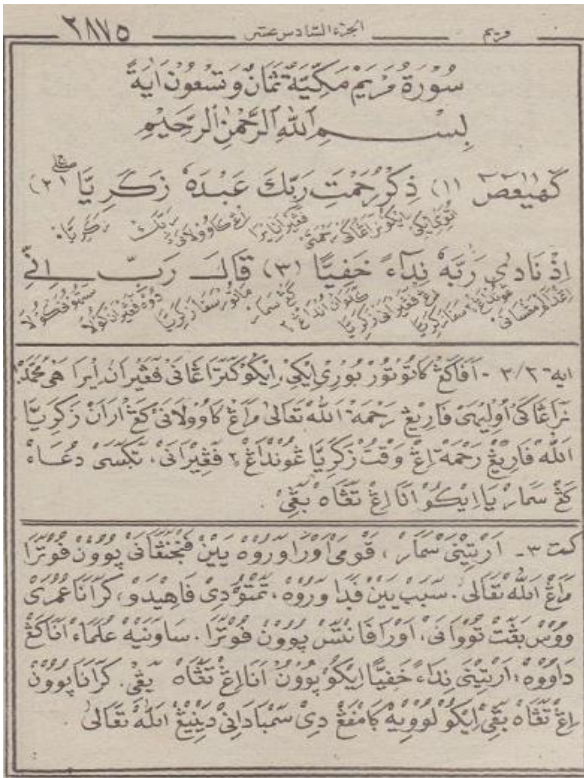 مريم الجزء السادس عشر ٢٨٧٥
سُوْرَةُ مَرْيَمَ مَكِّيَّةٌ ثَمَانٌ وَتِسْعُوْنَ اٰيَةً
بِسْمِ اللهِ الرَّحْمٰنِ الرَّحِيْمِ
كٓهٰيٰعٓصٓ (١) ذِكْرُ رَحْمَتِ رَبِّكَ عَبْدَهٗ زَكَرِيَّا (٢)
اِذْ نَادٰى رَبَّهٗ نِدَآءً خَفِيًّا (٣) قَالَ رَبِّ اِنِّيْ
اية ٢/٣ - اَفَاكَڠْ كَاتُوْتُوْرْ بُوْرِيْ اِيْكِيْ، اِيْكُوْ كَتَرَاڠَانَيْ فَڠَيْرَانْ اِيْرَا هَيْ مُحَمَّدْ!
نَرَاڠَاكَيْ اَوْلَيْهَيْ فَارِيْڠْ رَحْمَةْ اللهُ تَعَالٰى مَرَاڠْ كَاوُوْلَانَيْ كَڠْ اَرَانْ زَكَرِيَّا
اللهْ فَارِيْڠْ رَحْمَةْ اِڠْ وَقْتُ زَكَرِيَّا ڠُوْنْدَاڠْ٢ فَڠَيْرَانَيْ، تَݢْسَيْ دُعَاءْ
كَڠْ سَمَارْ يَا اِيْكُوْ اَنَا اِڠْ تَڠَاهْ بَڠِيْ.
كت ٣- اَرْتِيْنَيْ سَمَارْ، قَوْمَيْ اَوْرَا وَرُوْهْ يَيْنْ فَنْجَنَڠَانَيْ پُوْوُوْنْ فُوْتْرَا
مَرَاڠْ اللهْ تَعَالٰى. سَبَبْ يَيْنْ فَدَا وَرُوْهْ، تَمْتُوْ دِيْ فَاهِيْدَوْ، كَرَانَا عُمُرَيْ
وُوْسْ بَڠَتْ تُوْوَانَيْ، اَوْرَا فَانْتَسْ پُوْوُوْنْ فُوْتْرَا. سَاوَنَيْهْ عُلَمَاءْ اَنَا كَڠْ
دَاوُوْهْ: اَرْتِيْنَيْ نِدَاءً خَفِيًّا اِيْكُوْ پُوْوُوْنْ اَنَا اِڠْ تَڠَاهْ بَڠِيْ. كَرَانَا پُوْوُوْنْ
اِڠْ تَڠَاهْ بَڠِيْ اِيْكُوْ لُوْوِيْهْ ݢَامْفَڠْ دِيْ سَمْبَادَانِيْ دَيْنَيْڠْ اللهْ تَعَالٰى.